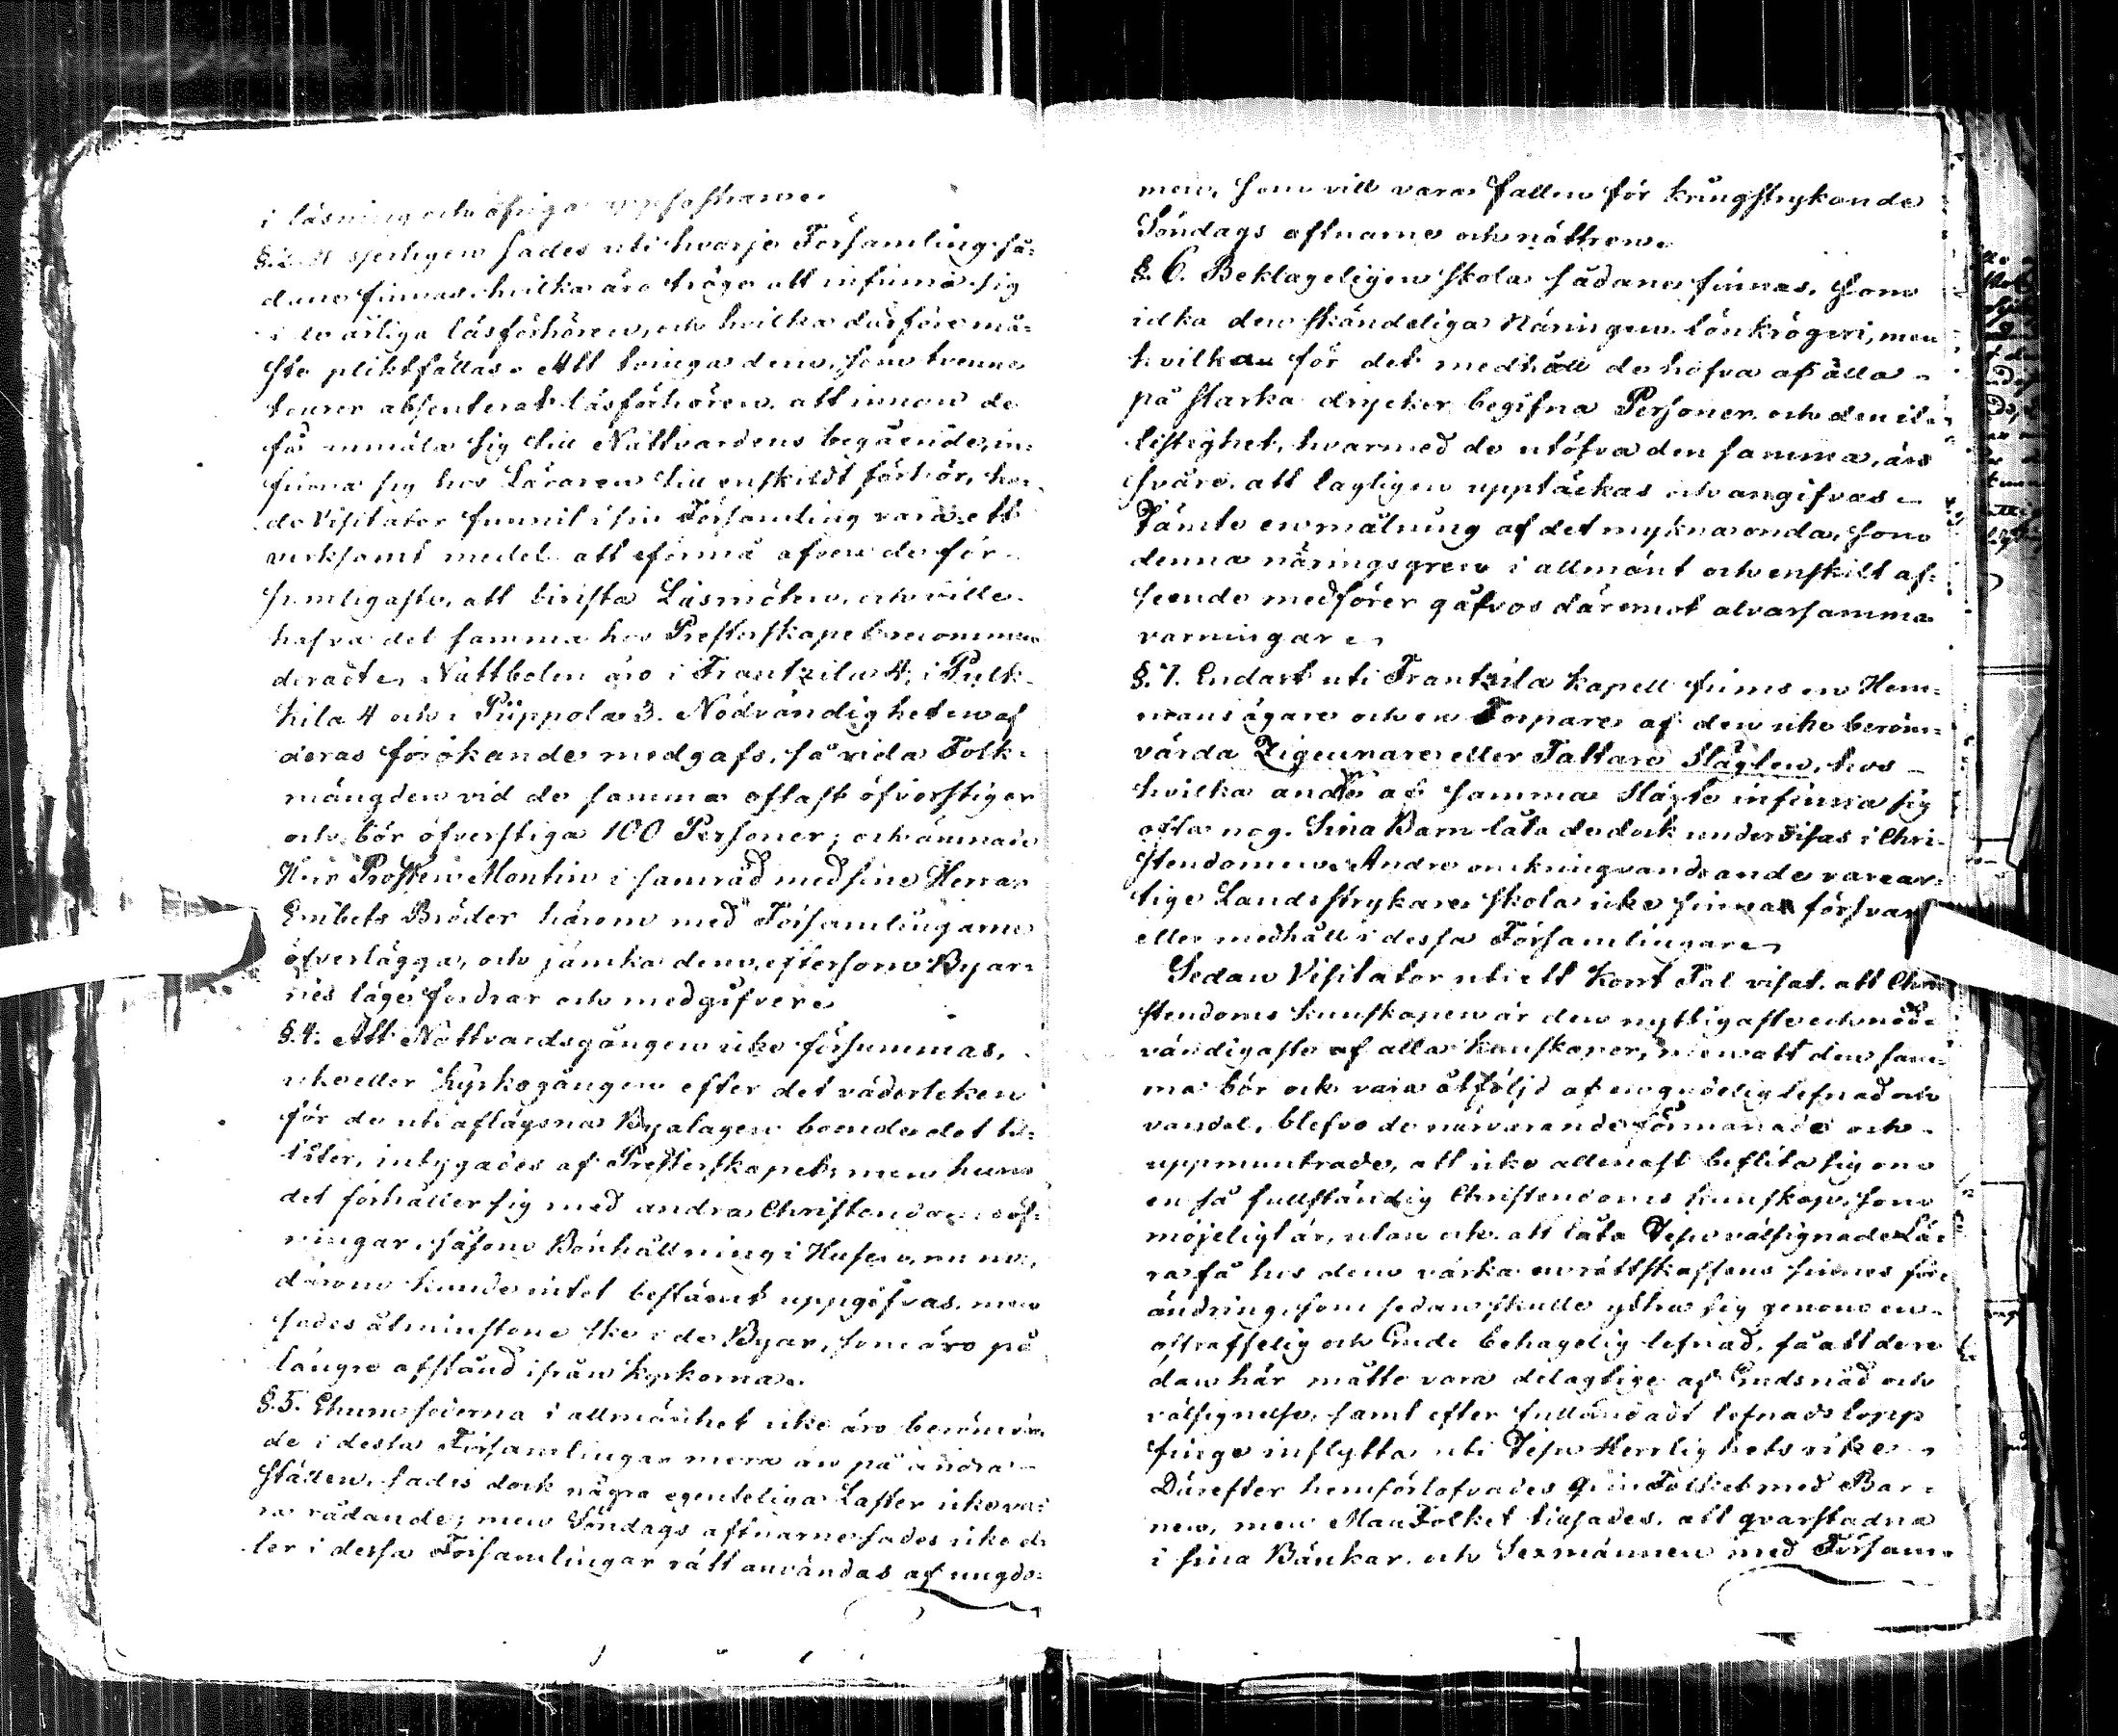 i läsning och öfriga uppfostran.
§. 3. Ytterligen sades uti hvarje Församling så-
dane finnas, hvilka äro tröge att infinna sig
i de årliga läsförhören, och hvilka därföre må-
ste pliktfällas. Att tvinga dem, som trenne
tourer absenterat läsförhören, att innan de
få anmäla sig till Nattvardens begående, in-
finna sig hos Läraren till enskildt förhör, ha-
de Visitator funnit i sin Församling vara ett
verksamt medel att förmå äfven de för-
sumligaste, att bivista Läsmöten, och ville
hafva det samma hos Presterskapet recommen-
deradt. Nattbolen äro i Frantzila 4, i Pulk-
kila 4 och i Piippola 3. Nödvändigheten af
deras förökande medgafs, så vida Folk-
mängden vid de samma oftast öfverstiger
och bör öfverstiga 100 Personer; och ämnade
Herr Prosten Montin i samråd med sine Herrar
Embets Bröder härom med Församlingarne
öfverlägga, och jämka dem, eftersom Byar-
nes läge fordrar och medgifver.
§. 4. Att Nattvardsgången icke försummas,
icke eller Kyrkogången efter det väderleken
för de uti aflägsna Byalagen boende det til-
låter, intygades af Presterskapet; men huru
det förhåller sig med andra Christendoms öf-
ningar, såsom Bönhållning i Husen,
därom kunde intet bestämt uppgifvas, men
sades åtminstone ske i de Byar, som äro på
längre afstånd ifrån Kyrkorna.
§. 5. Ehuru sederna i allmänhet icke äro berömvär-
de i dessa Församlingar mera än på andra
ställen, sades dock några egenteliga Laster icke va-
ra rådande; men Söndags aftnarne sades icke el-
ler i dessa Församlingar rätt användas af ungdo-
men, som vill vara fallen för kringstrykande
Söndags aftnarne och nätteren.
§. 6. Beklageligen skola sådane finnas, som
idka den skändeliga Näringen lönkrögeri, men
hvilka för det medhåll de hafva af alla
på starka drycker begifna Personer och den il-
listighet, hvarmed de utöfva den samma, äro
svåre att lagligen upptäckas och angifvas.
Jämte en målning af det mykna onda, som
denna näringsgren i allmänt och enskilt af-
seende medförer gåfvos däremot alvarsamma
varningar.
§. 7. Endast uti Frantzila Kapell finns en Hem-
mansägare och en Torpare af den icke beröm-
värda Zigeunare eller Tattare Slägten, hos
hvilka andre af samma Slägte infinna sig
ofta nog. Sina Barn låta de dock undervisas i Chri-
stendomen. Andre omkringvandrande varear-
tige Landsstrykare skola icke finna försvar
eller medhåll i dessa Församlingar.
Sedan Visitator uti ett kort Tal visat, att Chri-
stendoms kunskapen är den nyttigaste och nöd-
vändigaste af alla kunskaper, men att den sam-
ma bör ock vara åtföljd af en gudelig lefnad och
vandel, blefvo de närvarande förmanade och
uppmuntrade, att icke allenast beflita sig om
en så fullständig Christendoms kunskap, som
möjeligt är, utan ock att låta Jesu välsignade Lä-
ra få hos dem värka en rättskaffens sinnes för-
ändring, som sedan skulle yttra sig genom en
ostraffelig och Gudi behagelig lefnad, så att de re-
dan här måtte vara delaktige af Guds nåd och
välsignelse, samt efter fulländadt lefnads lopp
finge inflytta uti Jesu Herrlighets rike.
Därefter hemförlofvades Qvinfolket med Bar-
nen, men Manfolket tillsades, att qvarstadna
i sina Bänkar och Sexmännen med Försam-